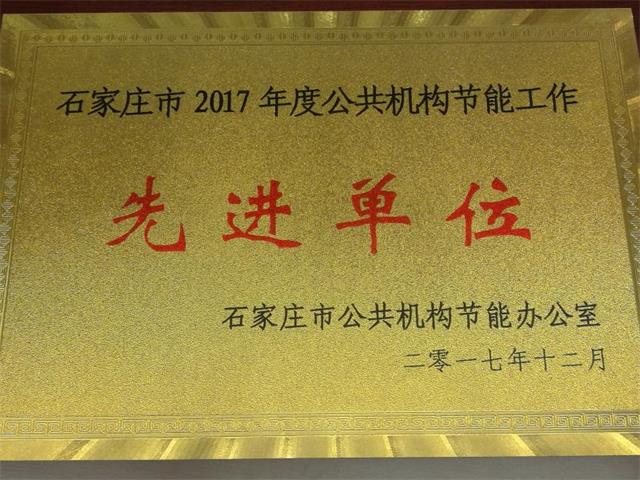 石家庄市 2017 年度公共机构节能工作
先进单位
石家庄市公共机构节能办公室
二零一七年十二月